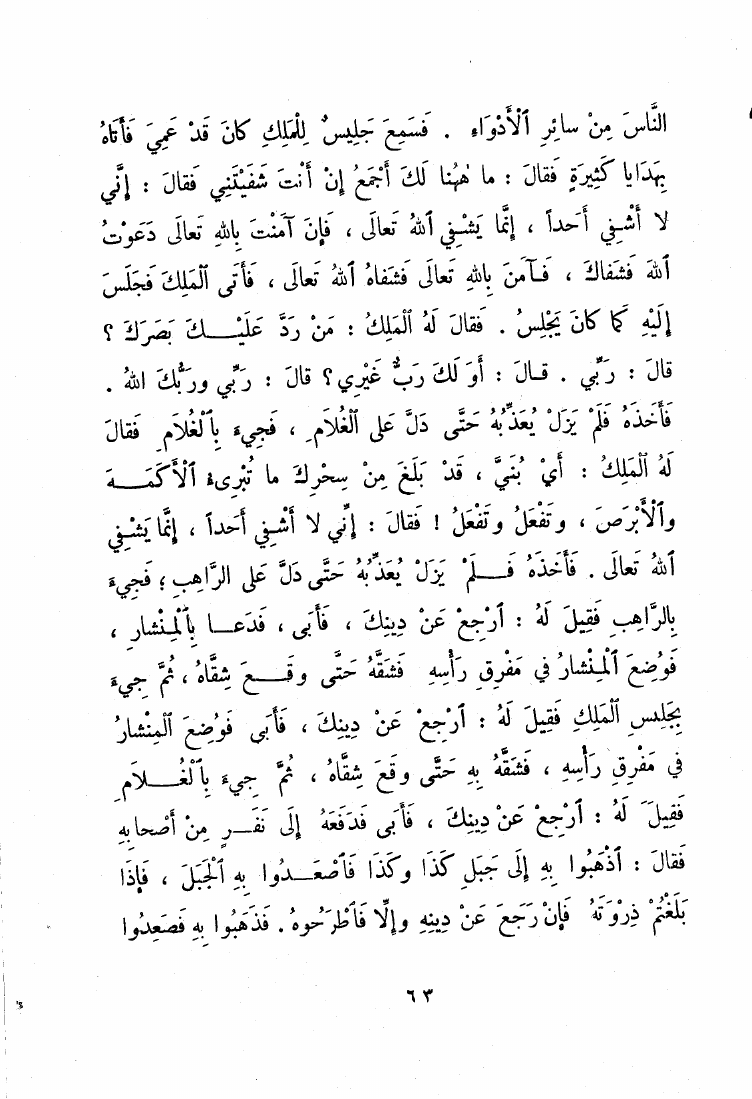 النَّاسَ مِنْ سائِرِ ٱلْأَدْوَاءِ . فَسَمِعَ جَلِيسٌ لِلْمَلِكِ كانَ قَدْ عَمِيَ فَأَتَاهُ
بِهَدَايا كَثِيرَةٍ فَقالَ : ما هٰهُنا لَكَ أَجْمَعُ إِنْ أَنْتَ شَفَيْتَنِي فَقالَ : إِنَّي
لا أَشْفِي أَحَداً ، إِنَّما يَشْفِي ٱللهُ تَعالَى ، فَإِنَ آمَنْتَ بِاللهِ تَعالَى دَعَوْتُ
ٱللهَ فَشَفاكَ ، فَآمَنَ بِاللهِ تَعالَى فَشَفاهُ ٱللهُ تَعالَى ، فَأَتَى ٱلْمَلِكَ فَجَلَسَ
إِلَيْهِ كَمَا كانَ يَجْلِسُ . فَقالَ لَهُ ٱلْمَلِكُ : مَنْ رَدَّ عَلَيْكَ بَصَرَكَ ؟
قالَ : رَبِّي . قالَ : أَوَ لَكَ رَبٌّ غَيْرِي؟ قالَ : رَبِّي ورَبُّكَ اللهُ .
فَأَخَذَهُ فَلَمْ يَزَلْ يُعَذِّبُهُ حَتَّى دَلَّ عَلى ٱلْغُلاَمِ ، فَجِيءَ بِٱلْغُلاَمِ فَقالَ
لَهُ ٱلْمَلِكُ : أَيْ بُنَيَّ ، قَدْ بَلَغَ مِنْ سِحْرِكَ ما تُبْرِىءُ ٱلْأَكْمَهَ
وٱلْأَبْرَصَ ، وتَفْعَلُ وتَفْعَلُ ! فَقالَ : إِنِّي لا أَشْفِي أَحَداً ، إِنَّما يَشْفِي
ٱللهُ تَعالَى . فَأَخَذَهُ فَلَمْ يَزَلْ يُعَذِّبُهُ حَتَّى دَلَّ عَلى الرَّاهِبِ ؛ فَجِيءَ
بِالرَّاهِبِ فَقِيلَ لَهُ : ٱرْجِعْ عَنْ دِينِكَ ، فَأَبَى ، فَدَعا بِٱلْمِنْشارِ ،
فَوُضِعَ ٱلْمِنْشارُ في مَفْرِقِ رَأْسِهِ فَشَقَّهُ حَتَّى وقَعَ شِقَّاهُ ، ثُمَّ جِيءَ
بِجَلِيسِ ٱلْمَلِكِ فَقِيلَ لَهُ : ٱرْجِعْ عَنْ دِينِكَ ، فَأَبَى فَوُضِعَ ٱلْمِنْشارُ
في مَفْرِقِ رَأْسِهِ ، فَشَقَّهُ بِهِ حَتَّى وقَعَ شِقَّاهُ ، ثُمَّ جِيءَ بِٱلْغُلاَمِ
فَقِيلَ لَهُ : ٱرْجِعْ عَنْ دِينِكَ ، فَأَبَى فَدَفَعَهُ إِلَى نَفَرٍ مِنْ أَصْحابِهِ
فَقالَ : ٱذْهَبُوا بِهِ إِلَى جَبَلِ كَذَا وكَذَا فَٱصْعَدُوا بِهِ ٱلْجَبَلَ ، فَإِذَا
بَلَغْتُمْ ذِرْوَتَهُ فَإِنْ رَجَعَ عَنْ دِينِهِ وإِلَّا فَٱطْرَحُوهُ . فَذَهَبُوا بِهِ فَصَعِدُوا
٦٣